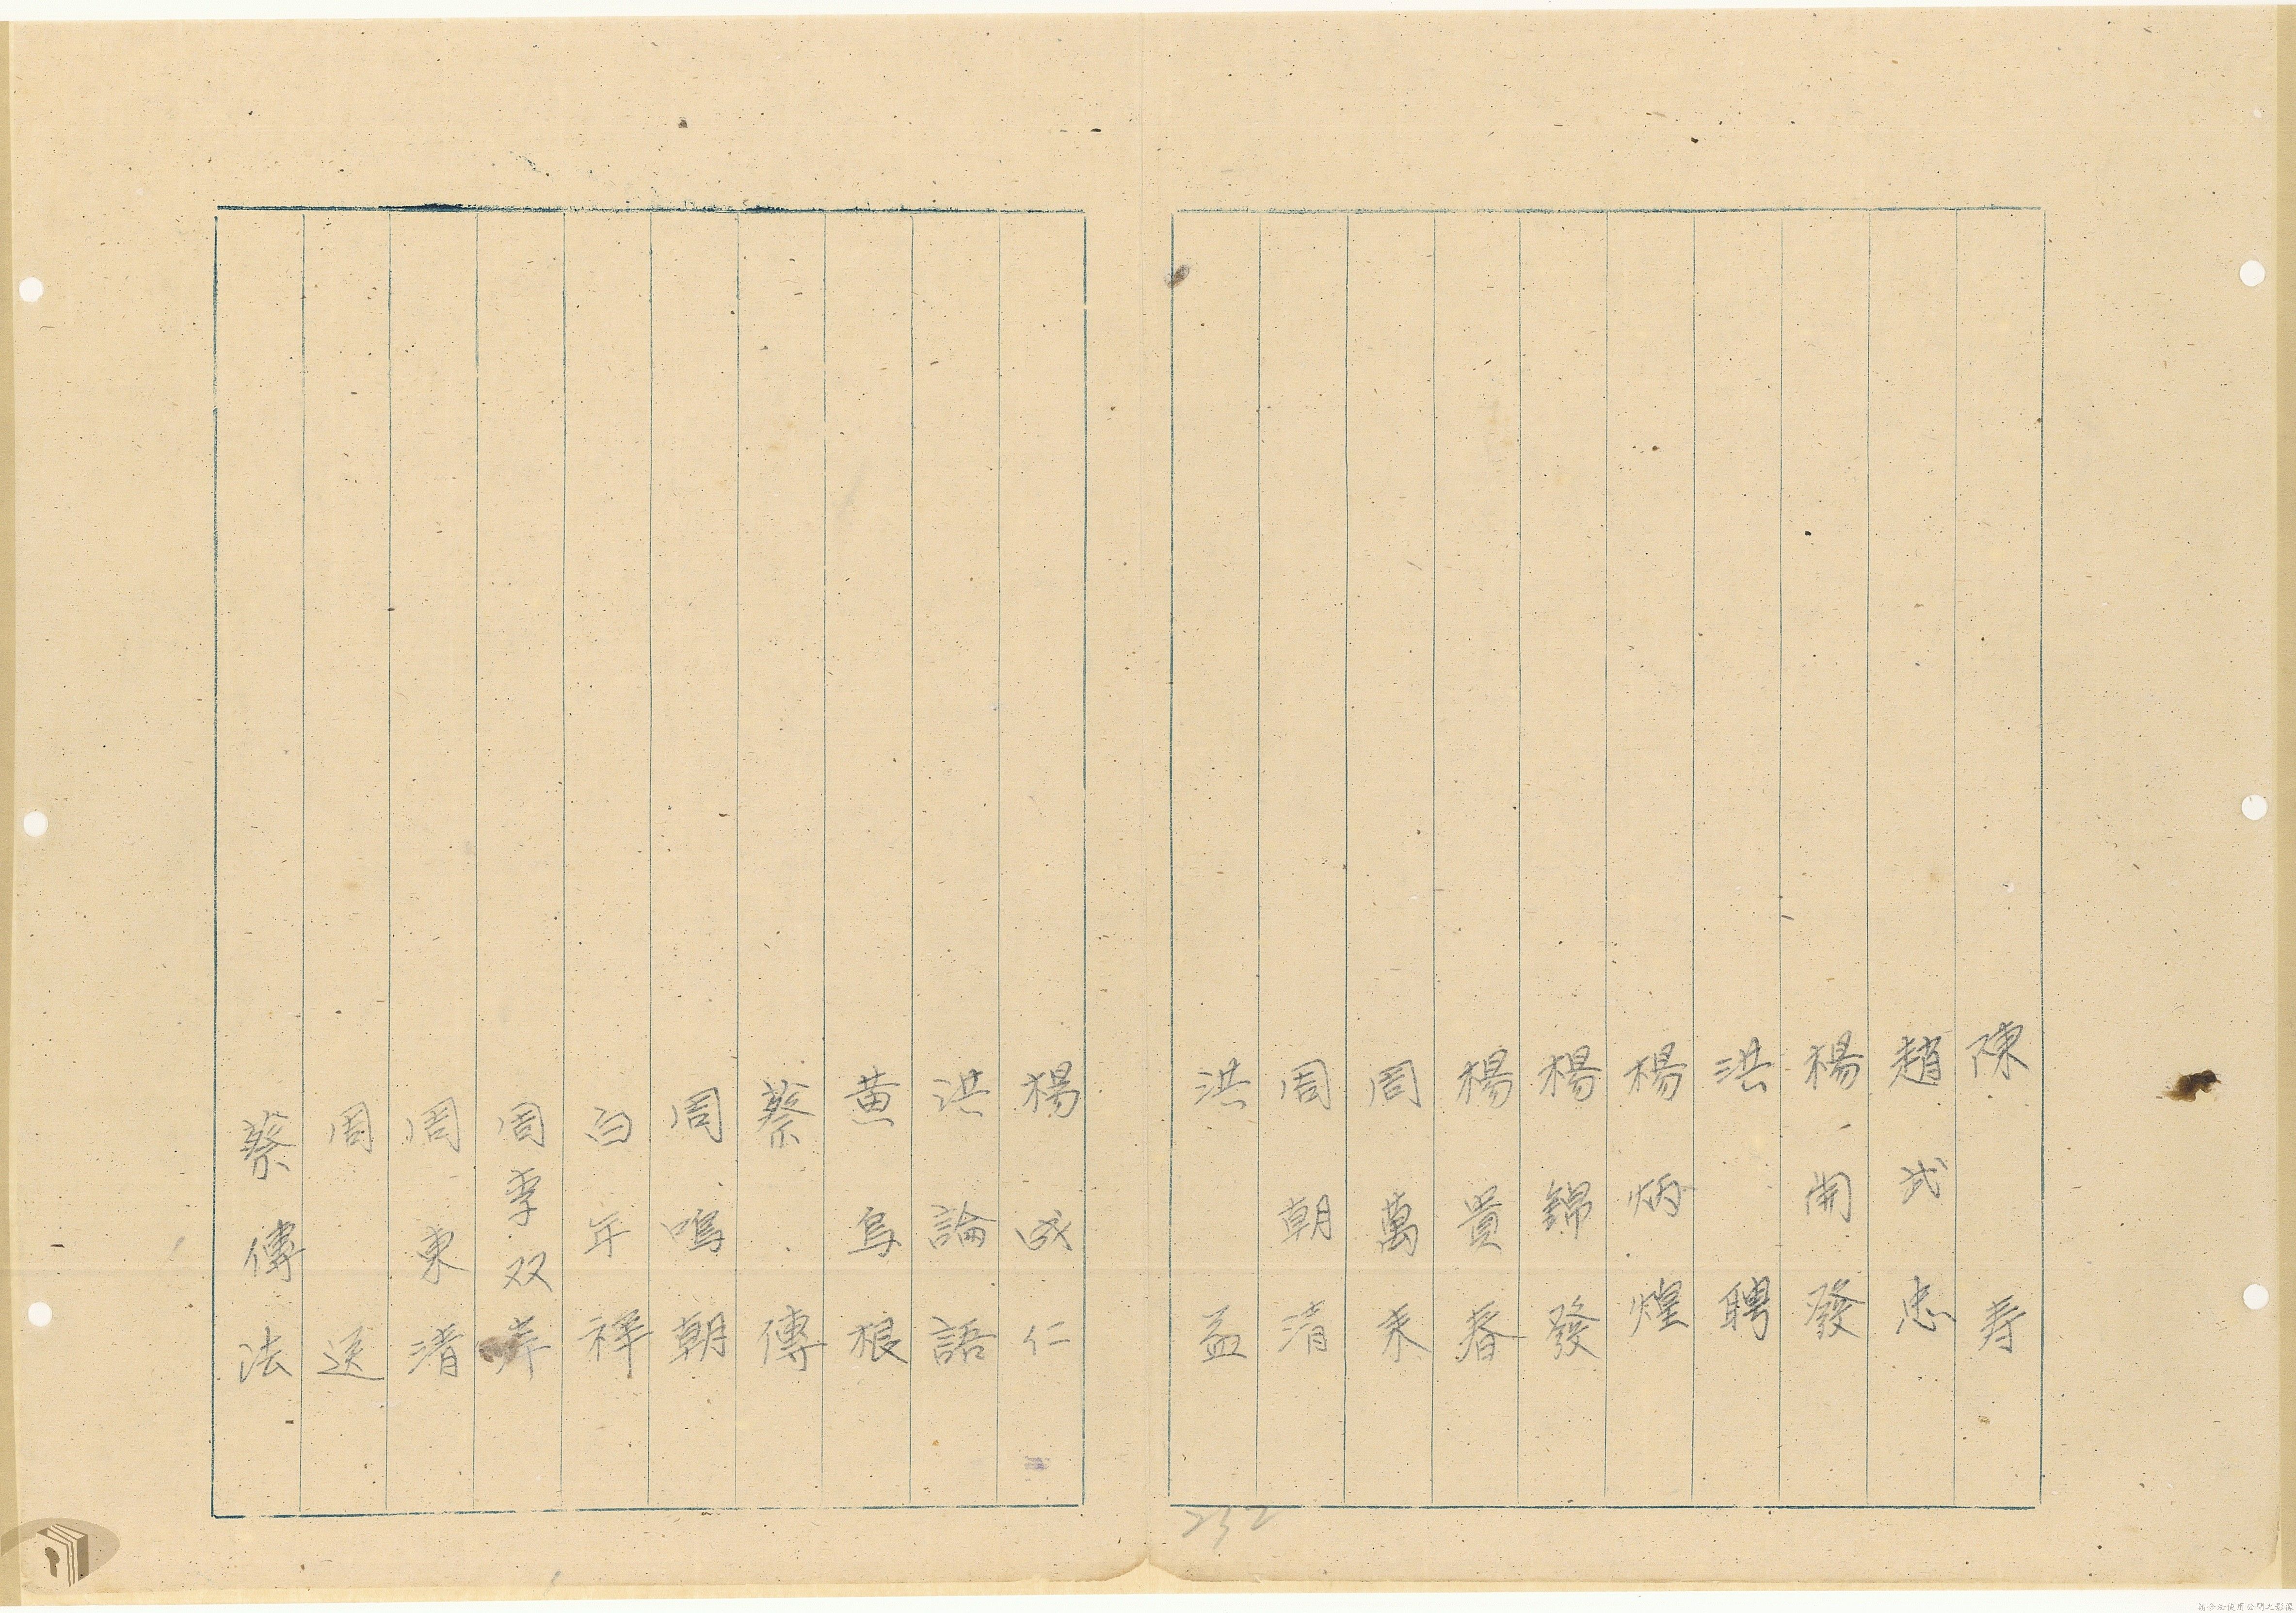 陳 寿
趙武忠
楊開發
洪 聘
楊炳煌
楊錦發
楊貴春
周萬来
周朝清
洪 益
楊成仁
洪論語
黄烏根
蔡 傳
周鳴朝
白年祥
周李双
周東清
周 送
蔡傳法
232
請合法使用公開之影像